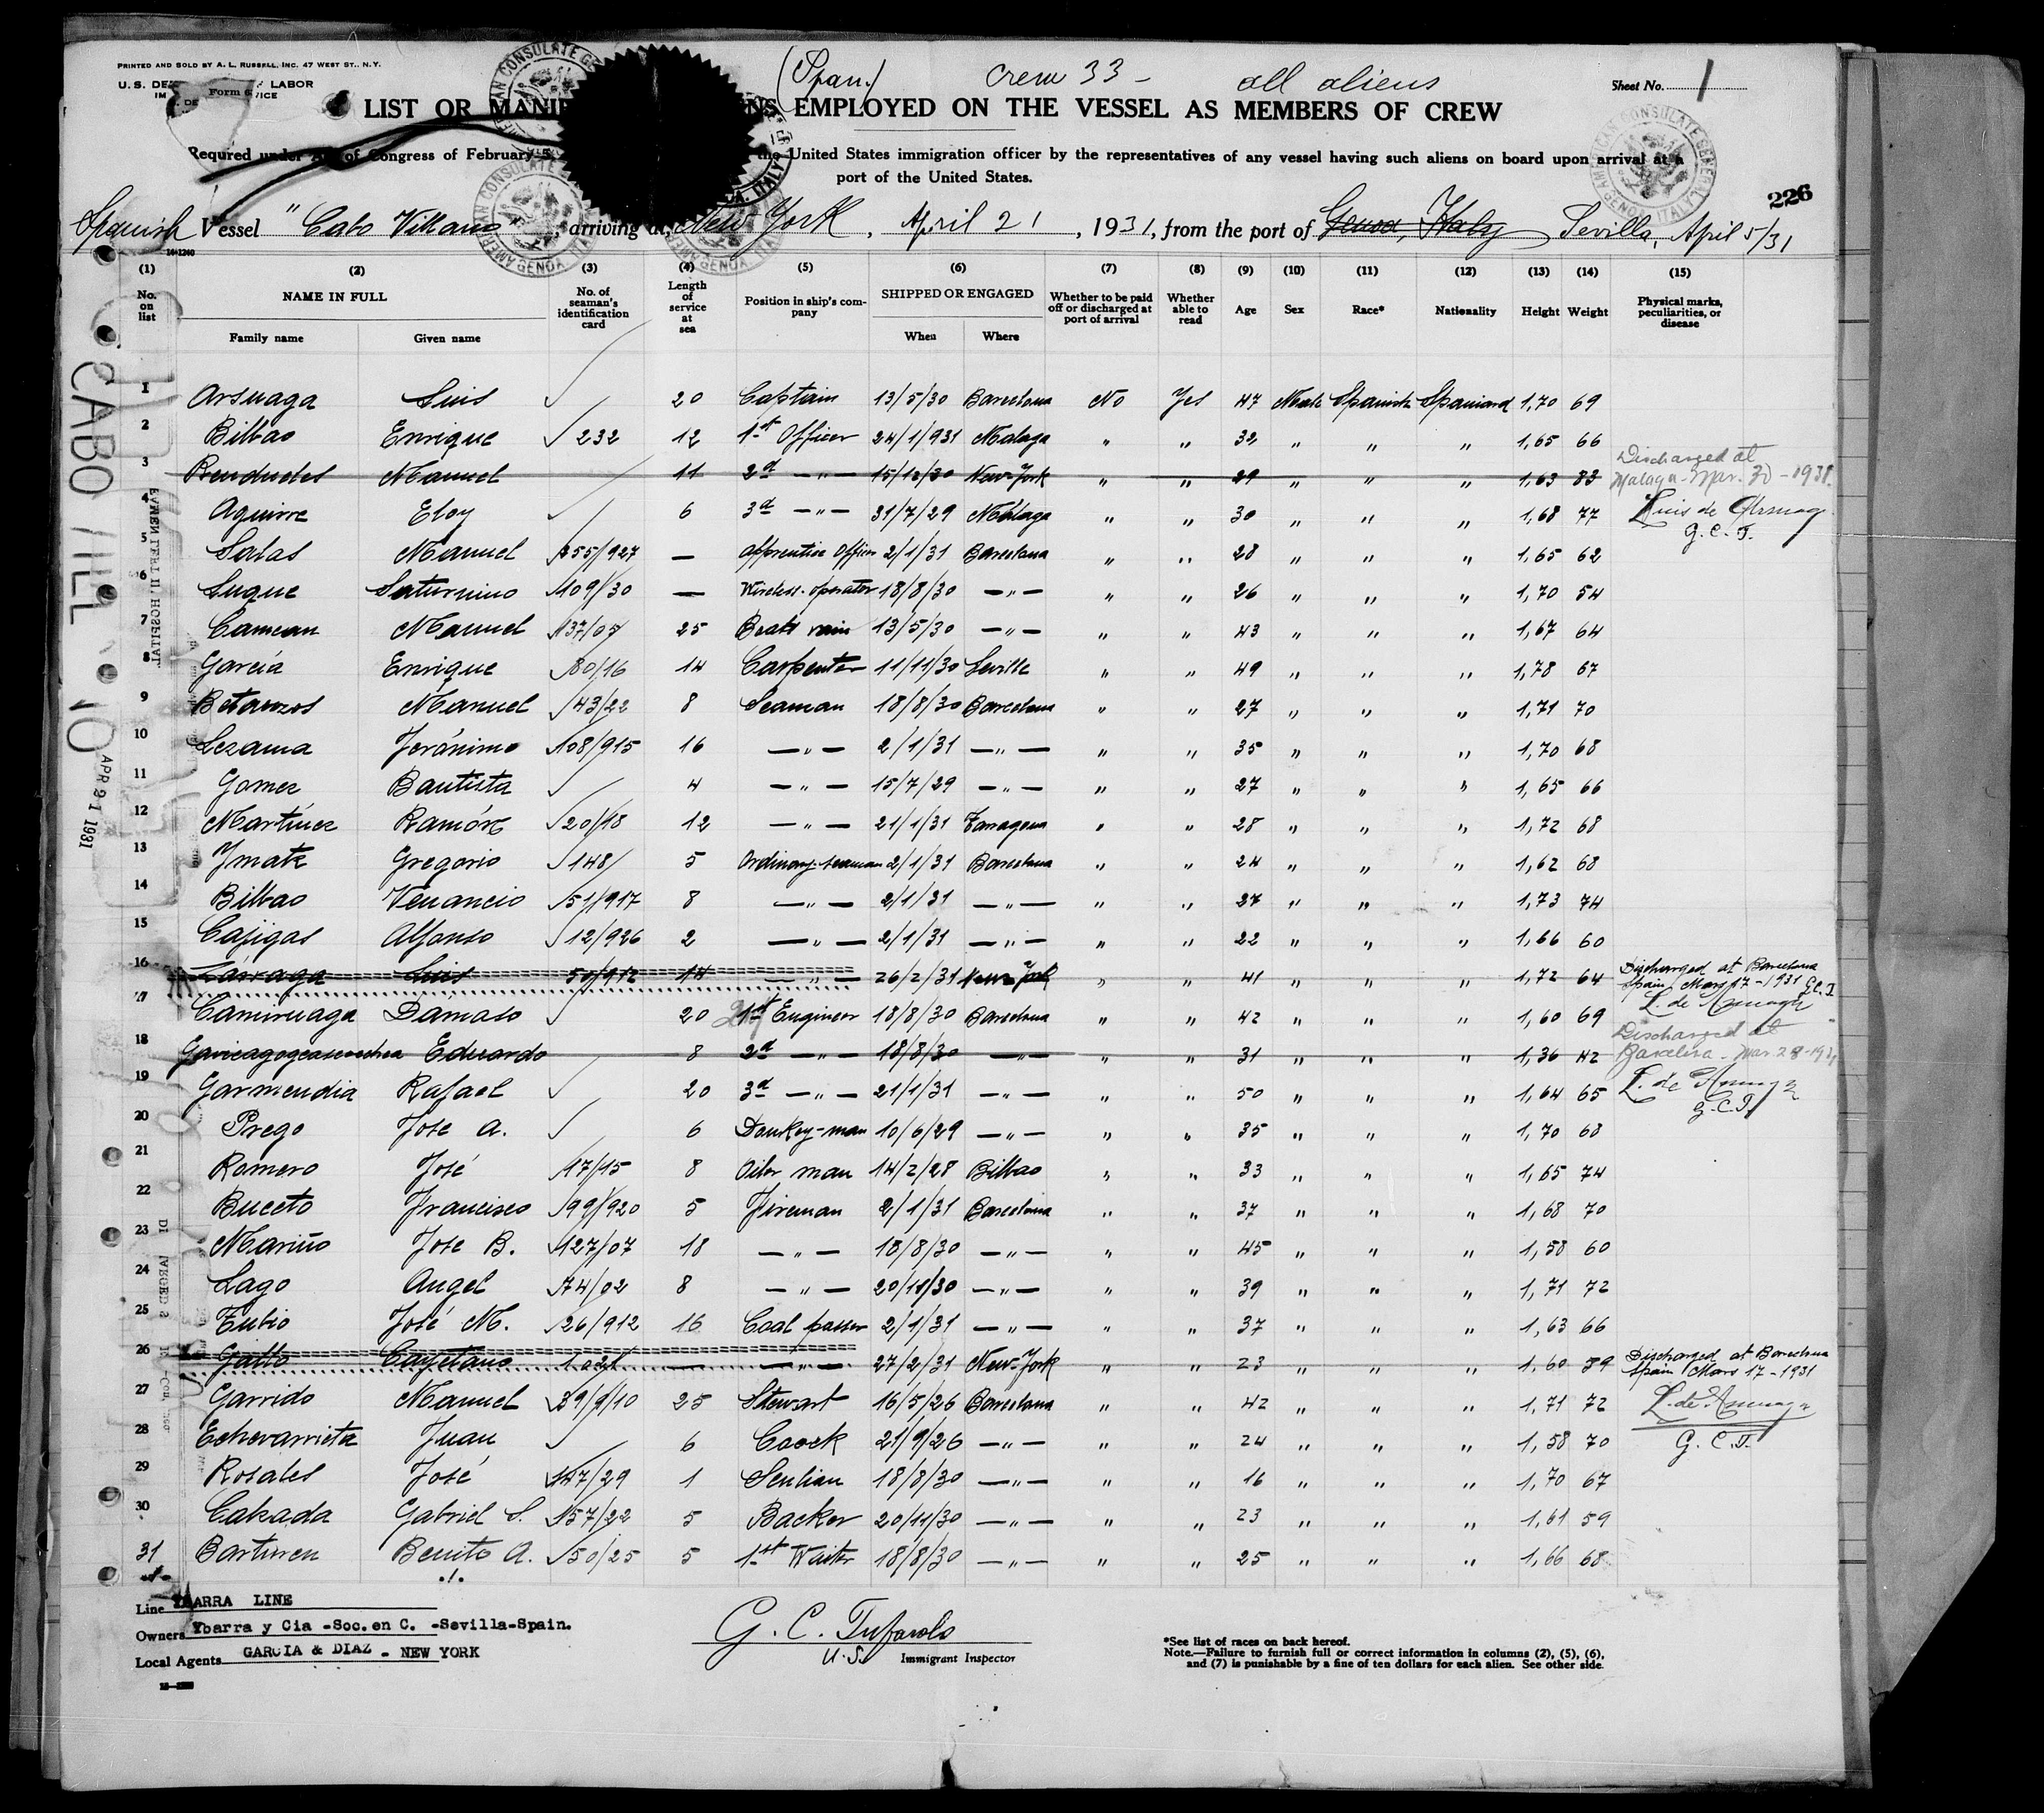 PRINTED AND SOLD BY A. L. RUSSELL, INC. 47 WEST ST., N.Y.
U. S. DE LABOR
Form
(Span.) Crew 33 - all aliens
Sheet No. 1
LIST OR MANIF NS EMPLOYED ON THE VESSEL AS MEMBERS OF CREW
Requred under Act of Congress of February 5, the United States immigration officer by the representatives of any vessel having such aliens on board upon arrival at a
port of the United States.
226
Spanish Vessel "Cabo Villano", arriving at New York, April 21, 1931, from the port of Genoa, Italy Sevilla, April 5/31
(1) (2) (3) (4) (5) (6) (7) (8) (9) (10) (11) (12) (13) (14) (15)
No. on list NAME IN FULL No. of seaman's identification card Length of service at sea Position in ship's company SHIPPED OR ENGAGED Whether to be paid off or discharged at port of arrival Whether able to read Age Sex Race* Nationality Height Weight Physical marks, peculiarities, or disease
Family name Given name When Where
1 Arsuaga Luis 20 Captain 13/5/30 Barcelona No Yes 47 Male Spanish Spaniard 1,70 69
2 Bilbao Enrique 232 12 1st Officer 24/1/931 Malaga " " 32 " " " 1,65 66
3 Manuel 11 2d -"- 15/12/30 New York " " 29 " " " 1,63 83 Discharged at Malaga - Mar. 30 - 1931.
4 Aguirre Eloy 6 3d -"- 31/7/29 Málaga " " 30 " " " 1,68 77 Luis de
G. C. T.
5 Salas Manuel 355/927 — Apprentice Officer 2/1/31 Barcelona " " 28 " " " 1,65 62
6 Luque Saturnino 109/30 — Wireless-Operator 18/8/30 -"- " " 26 " " " 1,70 54
7 Camean Manuel 137/07 25 13/5/30 -"- " " 43 " " " 1,67 64
8 García Enrique 80/16 14 Carpenter 11/11/30 Seville " " 49 " " " 1,78 67
9 Betanzos Manuel 43/22 8 Seaman 18/8/30 Barcelona " " 27 " " " 1,71 70
10 Lezama Jerónimo 108/915 16 -"- 2/1/31 -"- " " 35 " " " 1,70 68
11 Gomez Bautista 4 -"- 15/7/29 -"- " " 27 " " " 1,65 66
12 Martínez Ramón 20/18 12 -"- 21/1/31 Tarragona " " 28 " " " 1,72 68
13 Ymatz Gregorio 148/ 5 Ordinary-seaman 2/1/31 Barcelona " " 24 " " " 1,62 68
14 Bilbao Venancio 51/917 8 -"- 2/1/31 -"- " " 27 " " " 1,73 74
15 Cajigas Alfonso 12/926 2 -"- 2/1/31 -"- " " 22 " " " 1,66 60
16 Lárraga Luis 50/912 14 -"- 26/2/31 New York " " 41 " " " 1,72 64 Discharged at Barcelona Spain Mars 17-1931 G.C.T.
17 Camiruaga Damaso 20 1st Engineer 18/8/30 Barcelona " " 42 " " " 1,60 69 L. de Arsuaga
18 Eduardo 8 2d -"- 18/8/30 -"- " " 31 " " " 1,36 42 Discharged at Barcelona - Mar. 28-1931
19 Garmendia Rafael 20 3d -"- 21/1/31 -"- " " 50 " " " 1,64 65 L. de Arsuaga
G. C. T.
20 Prego Jose A. 6 Donkey-man 10/6/29 -"- " " 35 " " " 1,70 68
21 Romero José 17/15 8 Oiler man 14/2/28 Bilbao " " 33 " " " 1,65 74
22 Buceto Francisco 99/920 5 Fireman 2/1/31 Barcelona " " 37 " " " 1,68 70
23 Mariño Jose B. 127/07 18 -"- 18/8/30 -"- " " 45 " " " 1,58 60
24 Lago Angel 74/02 8 -"- 20/11/30 -"- " " 39 " " " 1,71 72
25 Tubio José M. 26/912 16 Coal passer 2/1/31 -"- " " 37 " " " 1,63 66
26 Gallo Cayetano 1021 — -"- 27/2/31 New-York " " 23 " " " 1,60 59 Discharged at Barcelona Spain Mars 17-1931
27 Garrido Manuel 39/9/10 25 Stewart 16/5/26 Barcelona " " 42 " " " 1,71 72 L. de Arsuaga
28 Echevarrieta Juan 6 Coock 21/9/26 -"- " " 24 " " " 1,58 70 G. C. T.
29 Rosales José 147/29 1 Scullian 18/8/30 -"- " " 16 " " " 1,70 67
30 Calzada Gabriel S. 157/22 5 Backer 20/11/30 -"- " " 23 " " " 1,61 59
31 Barturen Benito A. 50/25 5 1st Waiter 18/8/30 -"- " " 25 " " " 1,66 68
Line YBARRA LINE
Owners Ybarra y Cia -Soc. en C. -Sevilla-Spain.
Local Agents GARCIA & DIAZ - NEW YORK
G. C. Tufarolo
U.S. Immigrant Inspector
*See list of races on back hereof.
Note.—Failure to furnish full or correct information in columns (2), (5), (6),
and (7) is punishable by a fine of ten dollars for each alien. See other side.
CABO VILL
APR 21 1931